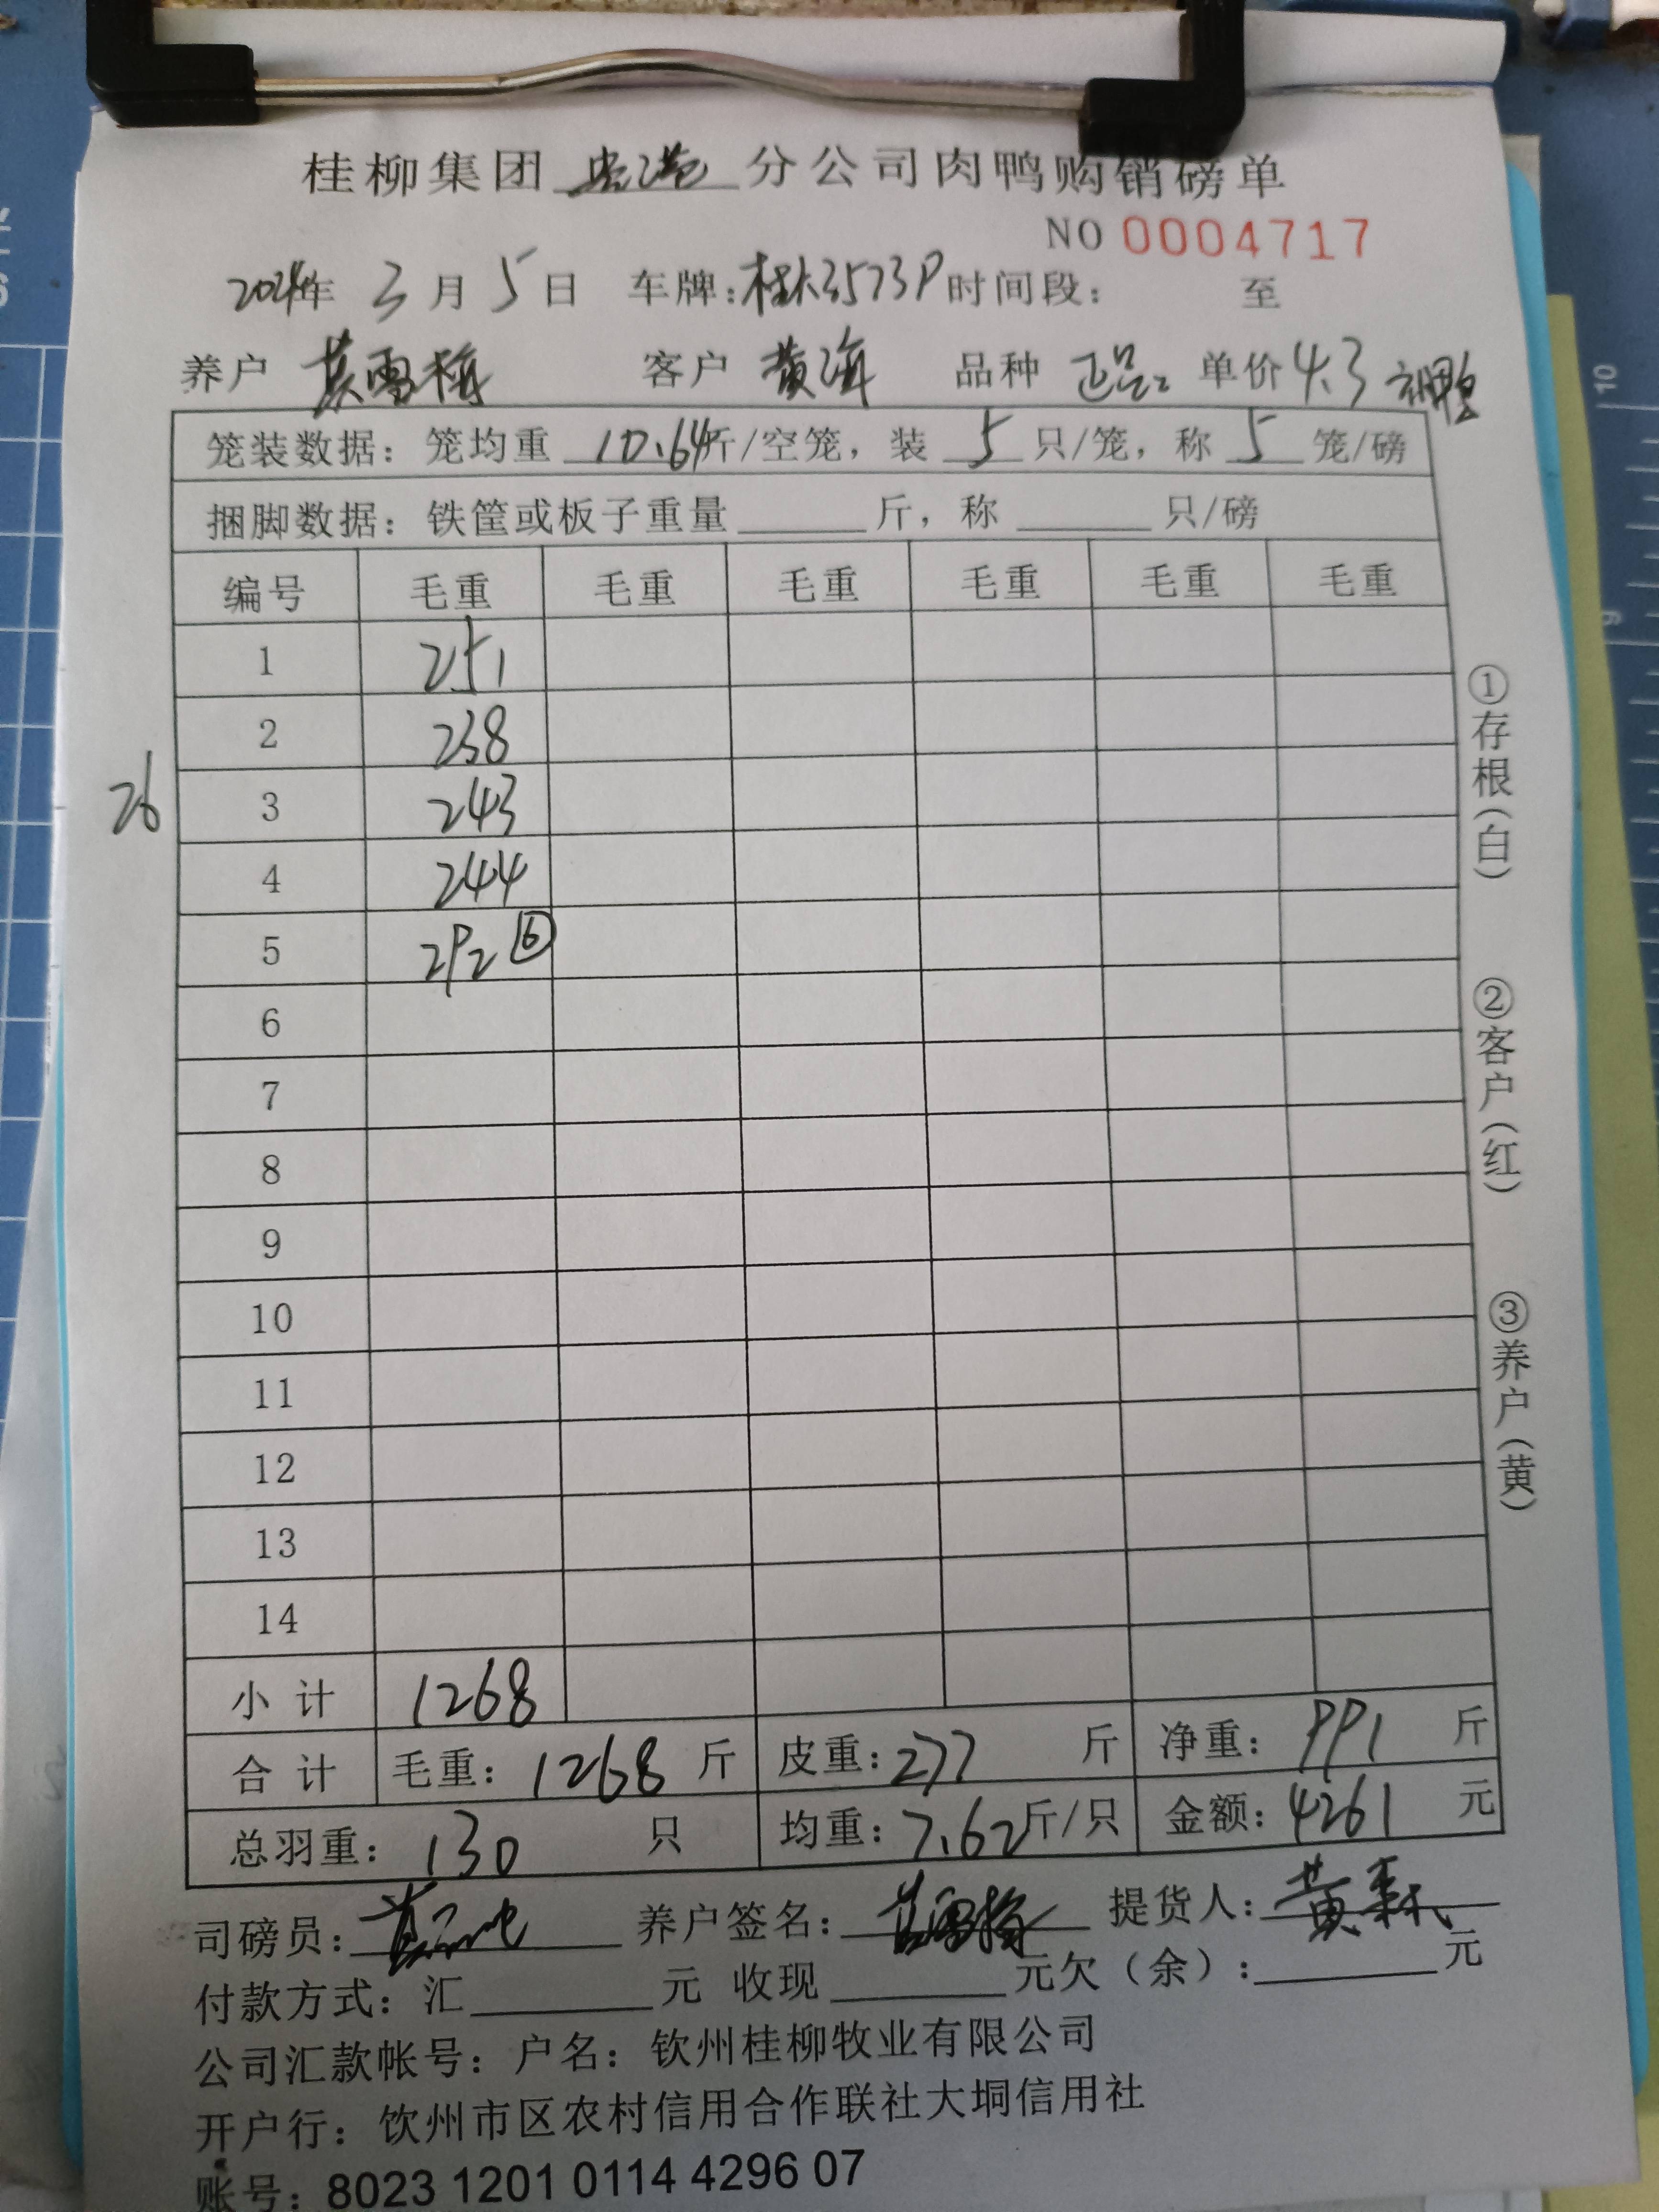 桂柳集团 贵港 分公司肉鸭购销磅单
NO 0004717
2024年 3 月 5 日 车牌: 时间段: 至
养户 客户 黄海 品种 正品 单价 4.3
笼装数据: 笼均重 10.64 斤/空笼, 装 5 只/笼, 称 5 笼/磅
捆脚数据: 铁筐或板子重量 斤, 称 只/磅
编号 毛重 毛重 毛重 毛重 毛重 毛重
1 251
2 238
26
3 243
4 244
5 292 ⑥
6
7
8
9
10
11
12
13
14
小计 1268
合计 毛重: 1268 斤 皮重: 277 斤 净重: 991 斤
总羽重: 130 只 均重: 7.62 斤/只 金额: 4261 元
司磅员: 养户签名: 提货人:
付款方式: 汇 元 收现 元欠(余): 元
公司汇款帐号: 户名: 钦州桂柳牧业有限公司
开户行: 钦州市区农村信用合作联社大垌信用社
账号: 8023 1201 0114 4296 07
①存根(白)
②客户(红)
③养户(黄)
10
9